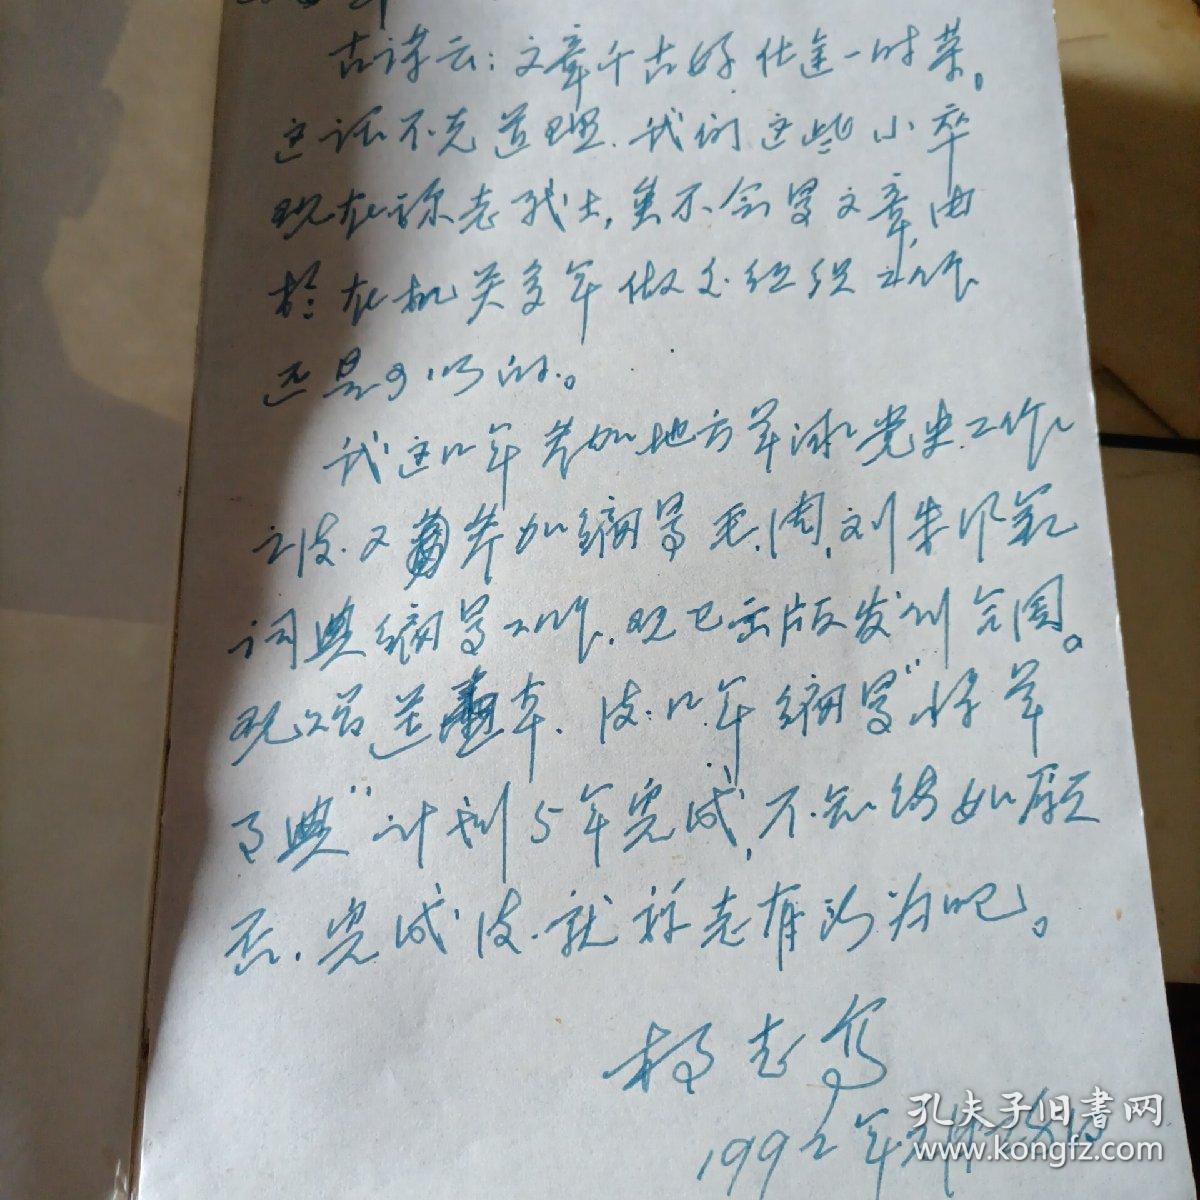 古诗云：文章千古好仕途一时荣。
这话不无道理.我们这些小卒
现在称老战士,虽不会写文章,由
於在机关多年做文组织工作
还是可以的。
我这几年参加地方军派党史工作
之后.又参加编写毛,周,刘朱
词典编写工作.现已出版发行全国。
现赠送本.后几年编写“将军
词典”计划5年完成,不知能如愿
否.完成后.就算老有所为吧。
杨志
1992年元月
孔夫子旧书网
www.kongfz.com